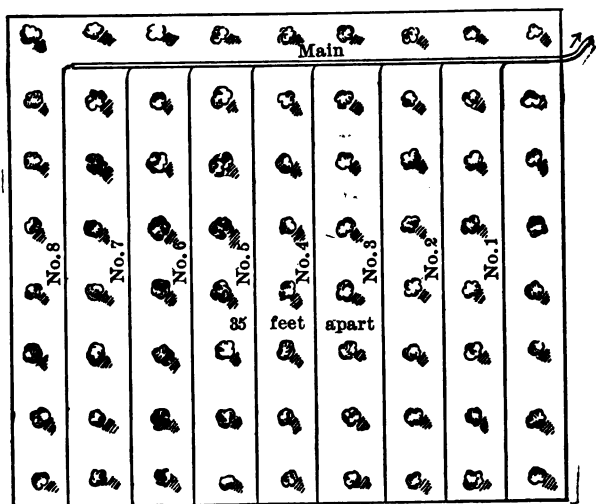 Main
No. 8
No. 7
No. 6
No. 5
No. 4
No. 3
No. 2
No. 1
35 feet apart